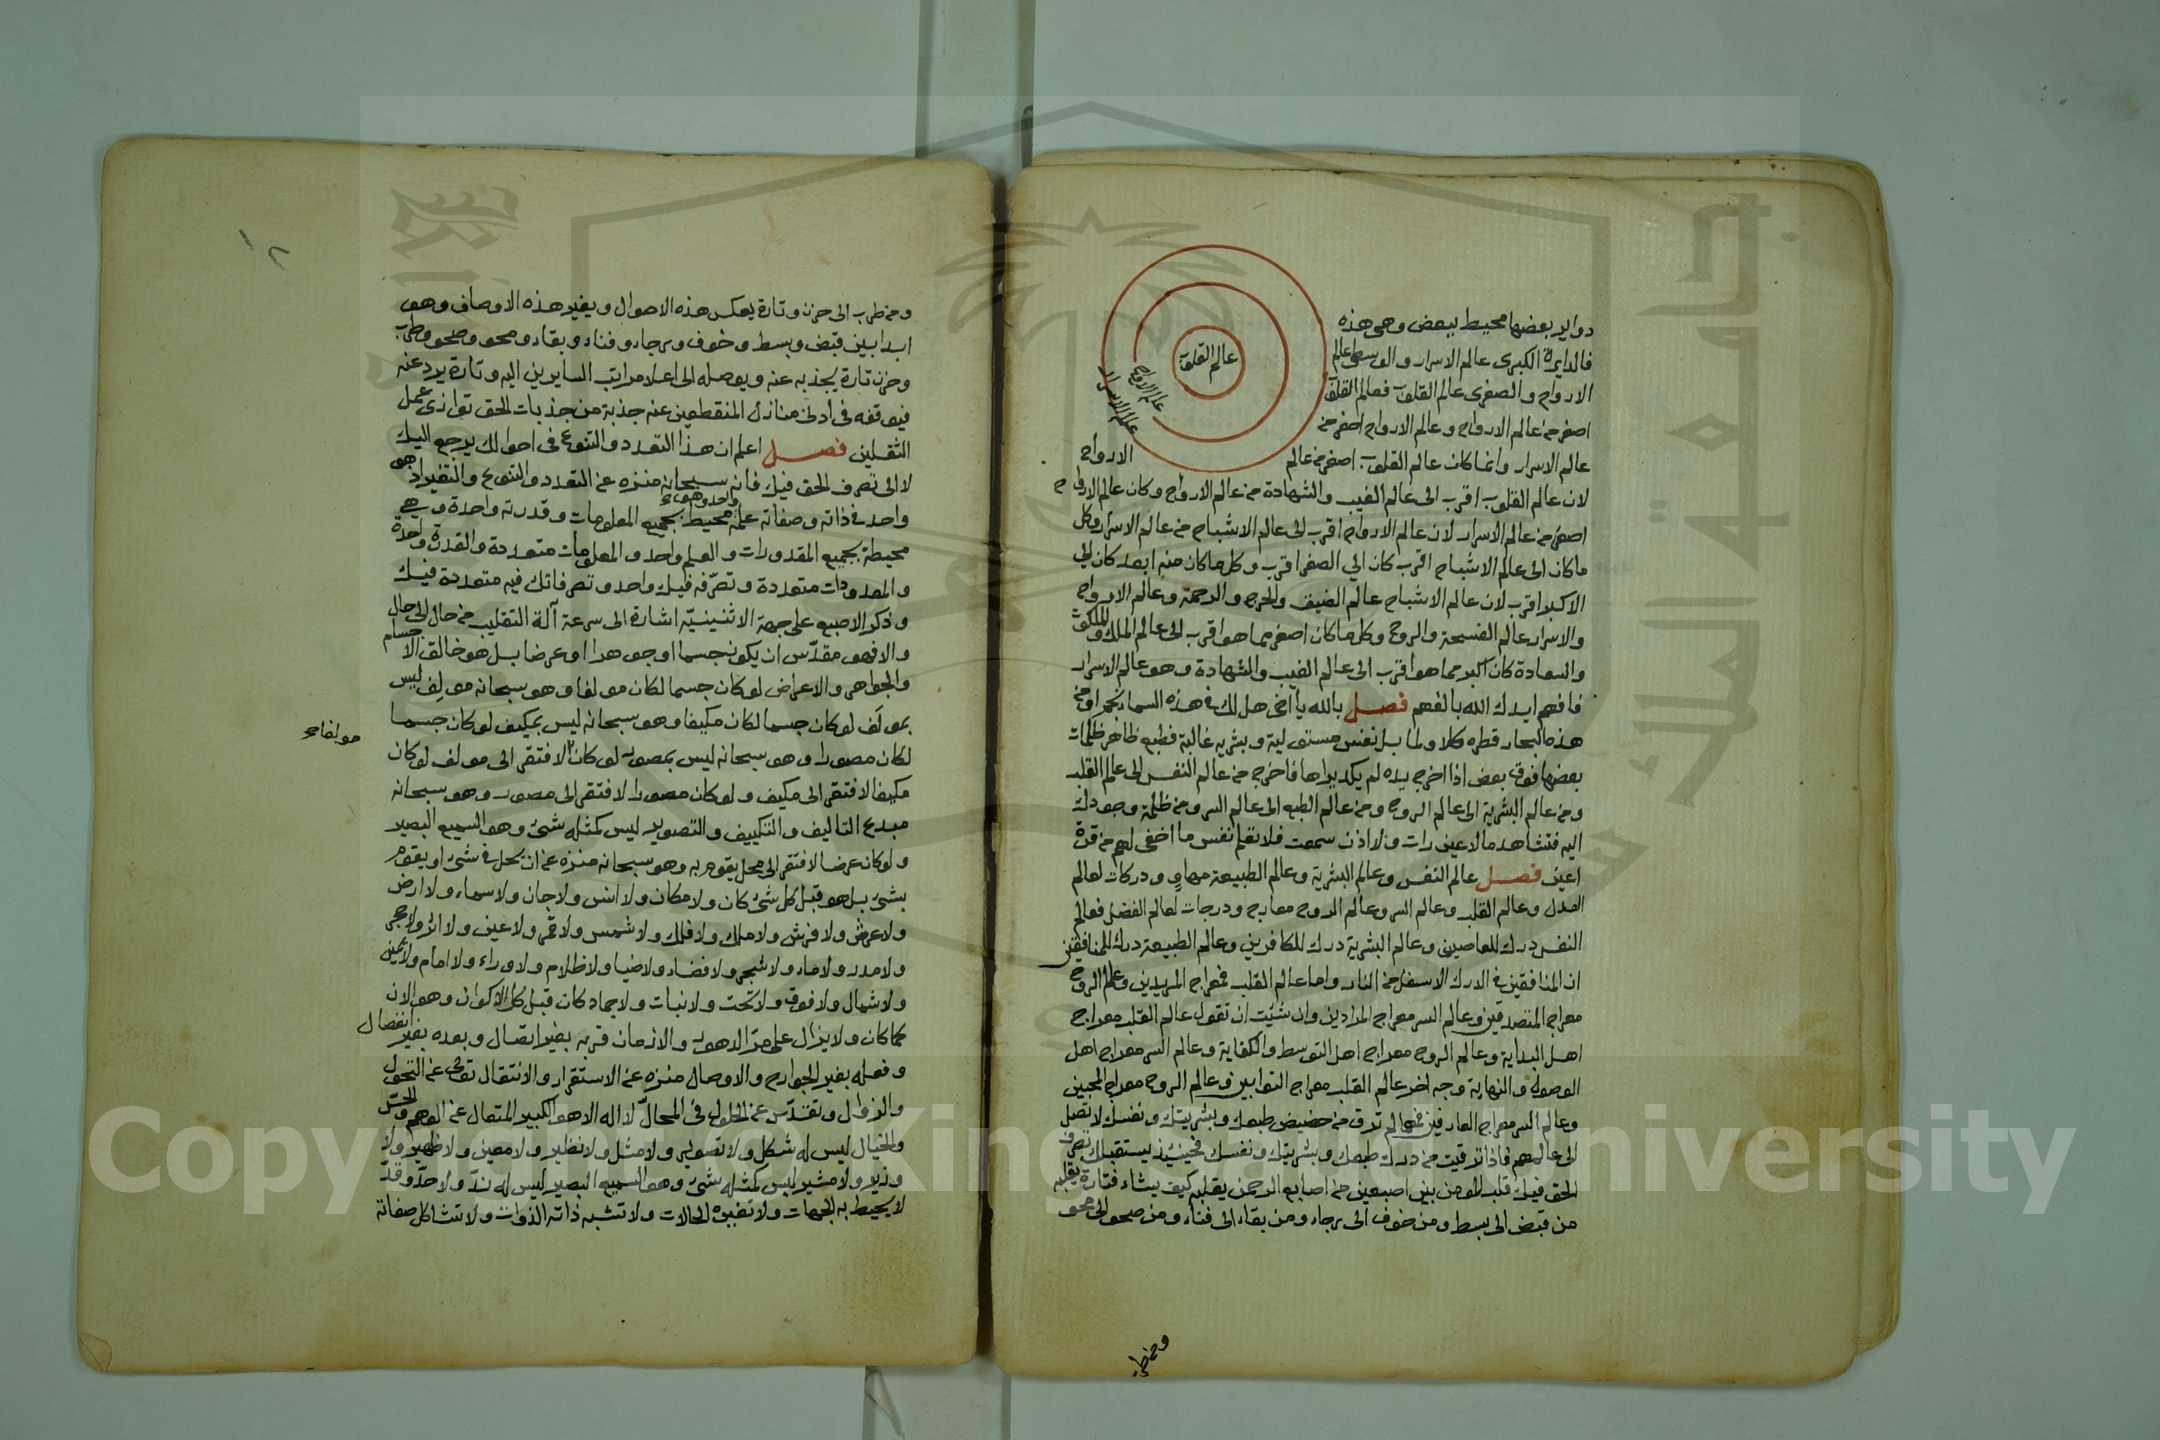 دواير بعضها محيط ببعض وهى هذه
فالدايرة الكبرى عالم الاسرار والوسطى عالم
الارواح والصغرى عالم القلوب فعالم القلوب
اصغر من عالم الارواح وعالم الارواح اصغر من
عالم الاسرار وانما كان عالم القلوب اصغر من عالم الارواح
عالم القلوب
عالم الارواح
عالم الاسرار
لان عالم القلوب اقرب الى عالم الغيب والشهادة من عالم الارواح وكان عالم الارواح
اصغر من عالم الاسرار لان عالم الارواح اقرب الى عالم الاشباح من عالم الاسرار وكل
ما كان الى عالم الاشباح اقرب كان الي الصغر اقرب وكل ما كان منه ابعد كان الي
الاكبر اقرب لان عالم الاشباح عالم الضيق والحرج والرحمة وعالم الارواح
والاسرار عالم الفسحة والروح وكل ما كان اصغر مما هو اقرب الى عالم الملك والملكوت
والسعادة كان اكبر مما هو اقرب الى عالم الغيب والشهادة وهو عالم الاسرار
فافهم ايدك الله بالفهم فصل بالله يا اخى هل لك فى هذه السما نجم او من
هذه البحار قطره كلا ولما بل نفس مستولية وبشريه غالبة فطبع ظاهر ظلمات
بعضها فوق بعض اذا اخرج يده لم يكد يراها فاخرج من عالم النفس الى عالم القلب
ومن عالم البشرية الى عالم الروح ومن عالم الطبع الى عالم السر ومن ظلمة وجودك
اليه فتشاهد ما لا عين رات ولا اذن سمعت فلا تعلم نفس ما اخفى لهم من قرة
اعين فصل عالم النفس وعالم البشرية وعالم الطبيعة مهاوٍ ودركات لعالم
العدل وعالم القلب وعالم السر وعالم الروح معارج ودرجات لعالم الفضل فعالم
النفس درك للعاصين وعالم البشرية درك للكافرين وعالم الطبيعة درك للمنافقين
ان المنافقين فى الدرك الاسفل من النار واما عالم القلب فمعراج المريدين وعالم الروح
معراج المتصدقين وعالم السر معراج المرادين وان شئت ان تقول عالم القلب معراج
اهل البداية وعالم الروح معراج اهل التوسط والكفاية وعالم السر معراج اهل
الوصول والنهاية وجه اخر عالم القلب معراج التوابين وعالم الروح معراج المحبين
وعالم السر معراج العارفين فما لم ترق من حضيض طبعك وبشريتك ونفسك لا تصل
الى عالمهم فاذا ترقيت من درك طبعك وبشريتك ونفسك فحينئذ يستقبلك تصرف
الحق فيك قلب المومن بين اصبعين من اصابع الرحمن يقلبه كيف يشاء فتارة يقلبه
من قبض الى بسط ومن خوف الى رجاء ومن بقاء الى فناء ومن صحو الى محو
ومن طر
ومن طرب الى حزن وتارة يعكس هذه الاحوال ويغير هذه الاوصاف وهو
ابدا بين قبض وبسط وخوف ورجاء وفناء وبقاء ومحو وصحو وطرب
وحزن تارة يجذبه عنه ويوصله الى اعلا مراتب السايرين اليه وتارة يرد عنه
فيوقفه فى ادنى منازل المنقطعين عنه جذبة من جذبات الحق توازى عمل
الثقلين فصل اعلم ان هذا التعدد والتنوع فى احوالك يرجع اليك
لا الى تصرف الحق فيك فانه سبحانه منزه عن التعدد والتنوع والتغير اذ هو
واحد وهو
واحد فى ذاته وصفاته علمه محيط بجميع المعلومات وقدرته واحدة وهى
محيطة بجميع المقدورات والعلم واحد والمعلومات متعددة والقدرة واحدة
والمعدودات متعددة وتصرفه فيك واحد وتصرفاتك فيه متعددة فيك
وذكر الاصبع على جهة الاثنينيّة اشارة الى سرعة آلة التقليب من حال الى حال
والا فهو مقدّس ان يكون جسما او جوهرا او عرضا بل هو خالق الاجسام
والجواهر والاعراض لو كان جسما لكان مولفا وهو سبحانه مولِف ليس
بمولَف لو كان جسما لكان مكيفا وهو سبحانه ليس بمكيف لو كان جسما
مولفا
لكان مصورا وهو سبحانه ليس بمصور لو كان لافتقر الى مولف لو كان
مكيفا لافتقر الى مكيف ولو كان مصورا لافتقر الى مصور وهو سبحانه
مبدع التاليف والتكييف والتصوير ليس كمثله شئ وهو السميع البصير
ولو كان عرضا لافتقر الى محل يقوم به وهو سبحانه منزه عن ان يحل فى شئ او يقوم
بشئ بل هو قبل كل شئ كان ولا مكان ولا انس ولا جان ولا سماء ولا ارض
ولا عرش ولا فرش ولا ملك ولا فلك ولا شمس ولا قمر ولا عين ولا اثر ولا حجر
ولا مدر ولا ماء ولا شجر ولا فضاء ولا ضيا ولا ظلام ولا وراء ولا امام ولا يمين
ولا شمال ولا فوق ولا تحت ولا نبات ولا جماد كان قبل كل الاكوان وهو الان
كما كان ولا يزال على مر الدهور والازمان قربه بغير اتصال وبعده بغير انفصال
وفعله بغير الجوارح والاوصال منزه عن الاستقرار والانتقال تعالى عن التحول
والزوال وتقدّس عن الحلول فى المحالّ لا اله الا هو الكبير المتعال عن الوهم والحسّ
والخيال ليس له شكل ولا تصوير ولا مثل ولا نظير ولا معين ولا ظهير ولا
وزير ولا مشير ليس كمثله شئ وهو السميع البصير ليس له ندّ ولا حدّ وقدّ
لا يحيط به الجهات ولا تغيره الحالات ولا تشبه ذاته الذوات ولا تشاكل صفاته
Copyright © King Saud University